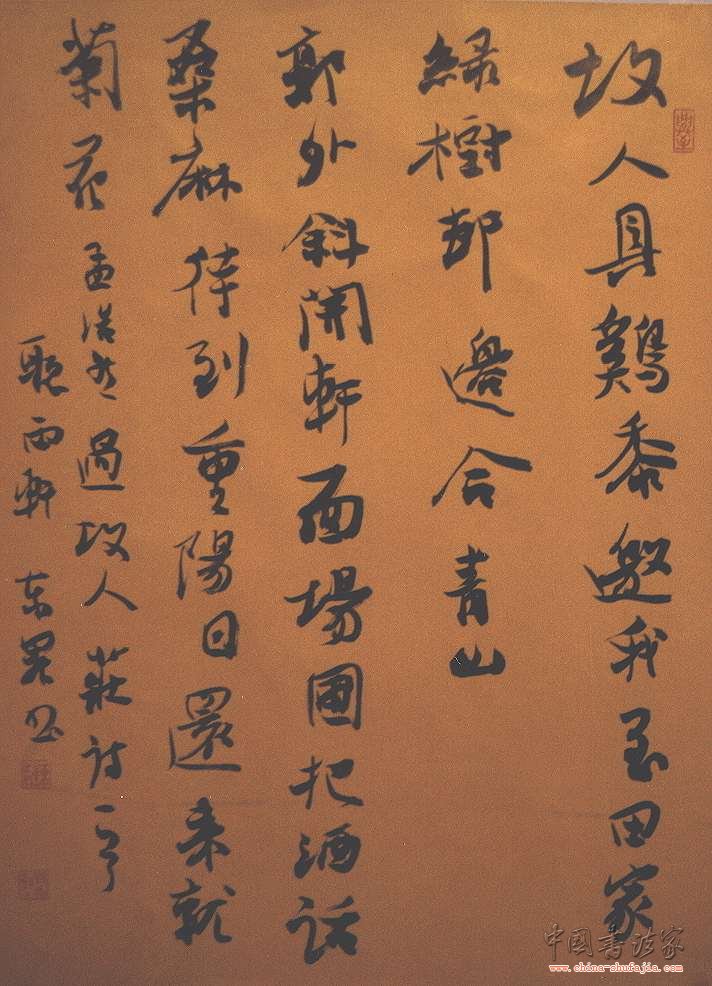 故人具鷄黍邀我至田家
緑樹邨邊合青山
郭外斜開軒面場圃把酒話
桑麻待到重陽日還来就
菊花
孟浩然過故人莊詩一首
聽雨軒東
中国书法家
www.china-shufajia.com